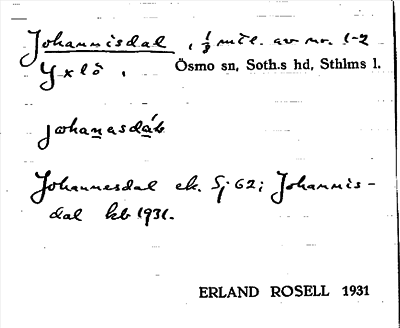 Johannisdal, 1/2 mtl. av nr. 1-2
Yxlö. Ösmo sn, Soth.s hd, Sthlms l.
johanasdáḷ
Johannesdal ek. Sj 62; Johannis-
dal kb 1931.
ERLAND ROSELL 1931